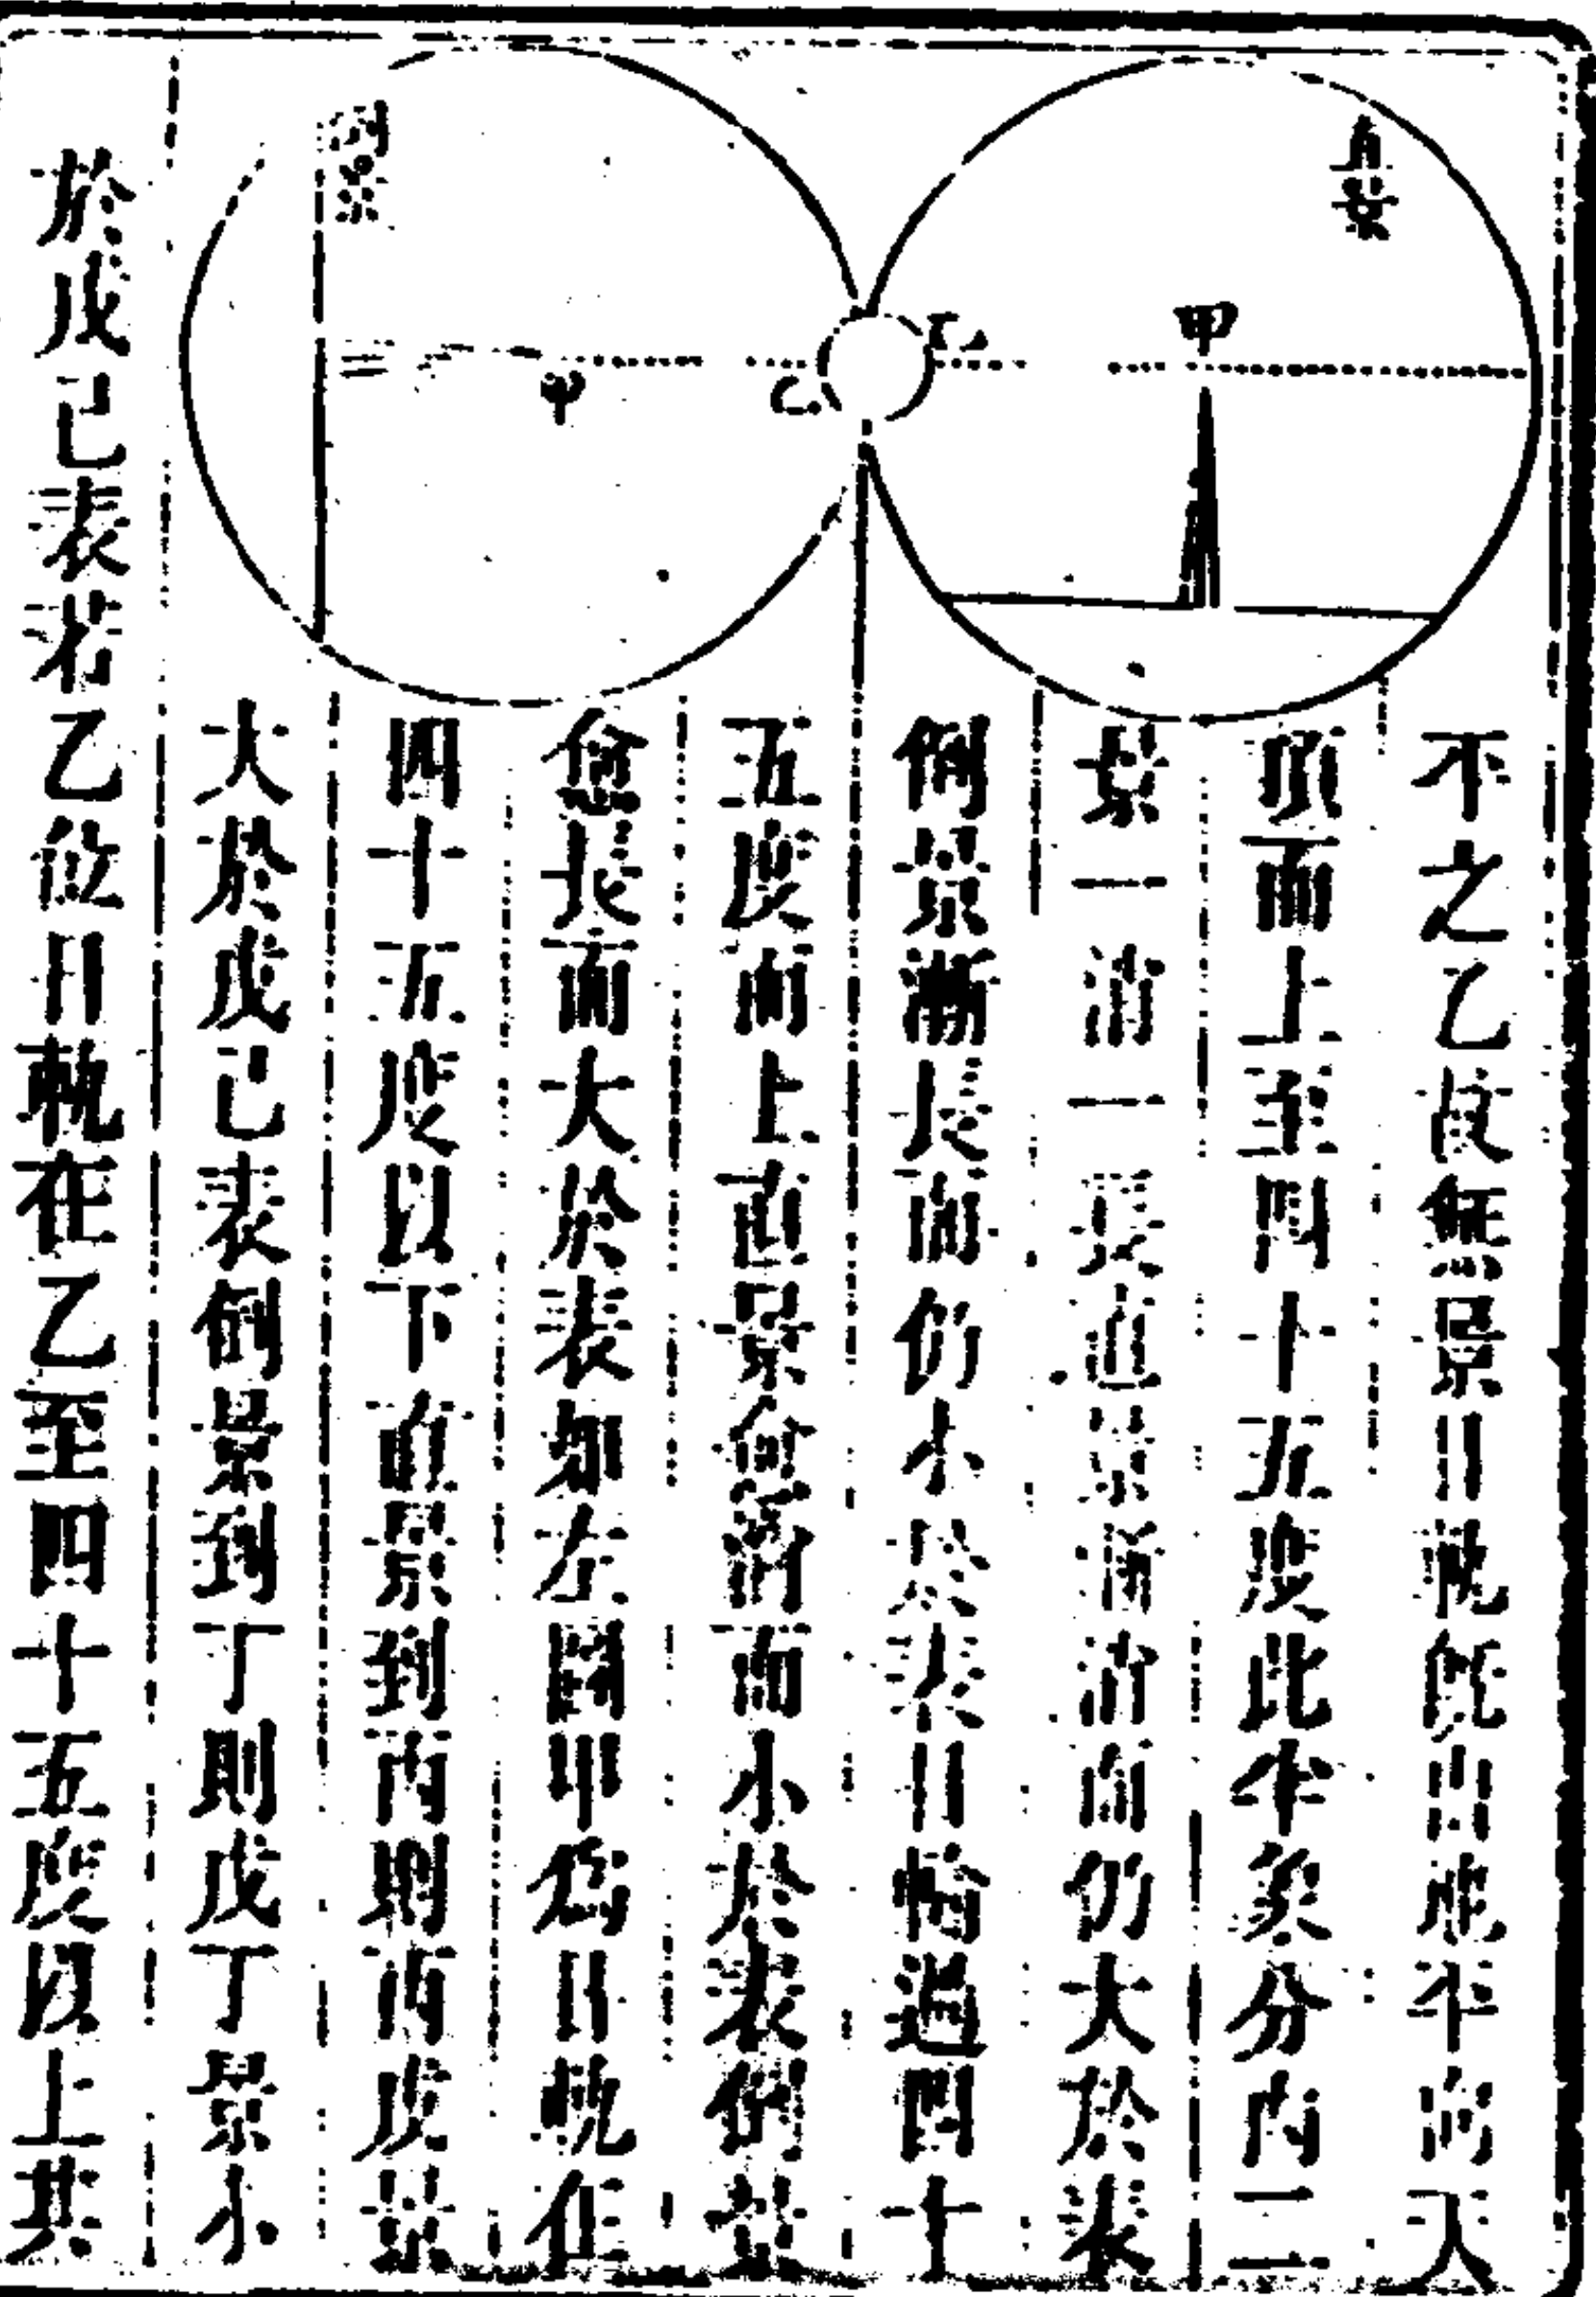 直景
甲
乙
倒景
甲
乙
不之乙故無景日軌既出地平向天
頂而上至四十五度此半象分内二
景一消一長直景漸消而仍大於表
倒景漸長而仍小於表日輪過四十
五度而上直景愈消而小於表倒景
愈長而大於表如左圖甲為日軌在
四十五度以下直景到丙則丙戊景
大於戊己表倒景到丁則戊丁景小
於戊己表若乙位日軌在乙至四十五度以上其